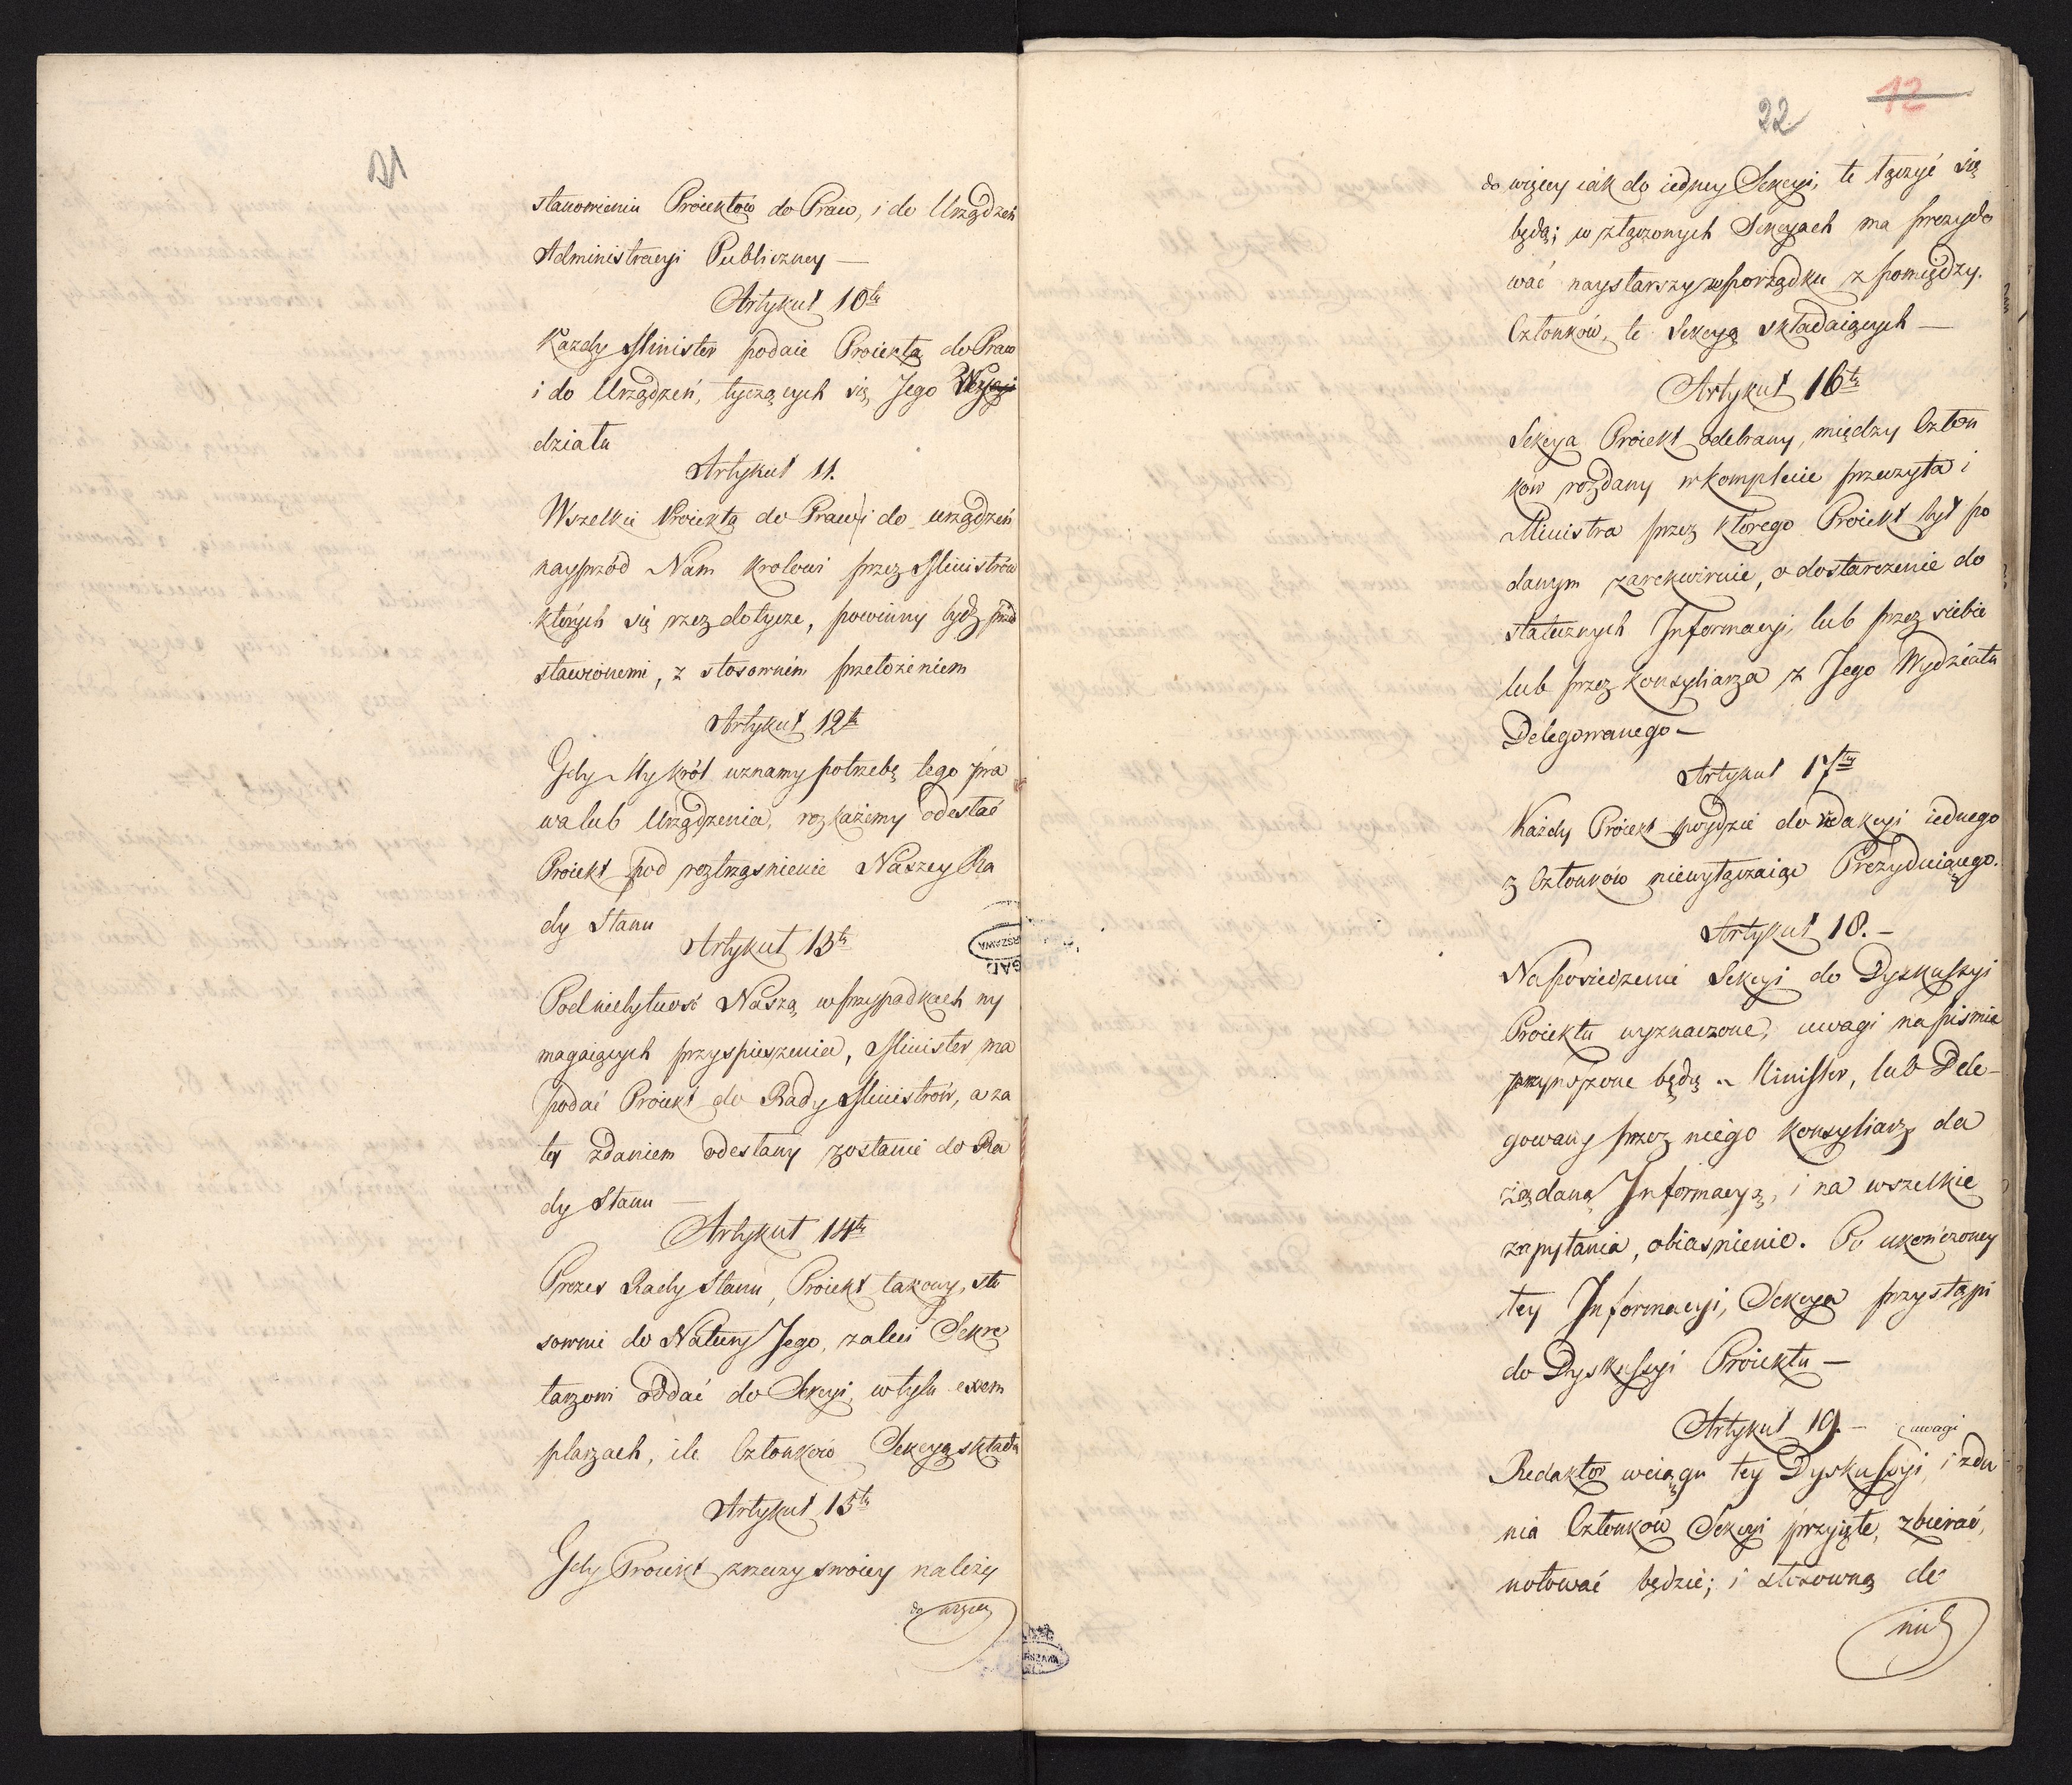 21
stanowieniu Proiektow do Praw, i do Urządzeń
Administracyi Publiczney —
Artykuł 10ty
Każdy Minister podaie Proiekta do Praw
i do Urządzeń, tyczących się Jego Wy
działu
Artykuł 11.
Wszelkie Proiekta do Praw i do urządzeń
nayprzód Nam Krolowi przez Ministrów
których się rzecz dotycze, powinny bydź przed
stawionemi, z stosownim przełożeniem
Artykuł 12ty
Gdy My Król uznamy potrzebę tego pra
wa lub Urządzenia, rozkażemy odesłać
Proiekt pod roztrząśnienie Naszey Ra
dy Stanu
Artykuł 13ty
Pod niebytność Naszą, w przypadkach wy
magaiących przyspieszenia, Minister ma
podać Proiekt do Rady Ministrów, a za
tey zdaniem odesłany zostanie do Ra
dy Stanu —
Artykuł 14ty
Prezes Rady Stanu, Proiekt takowy, sto
sownie do Natury Jego, zaleci Sekre
tarzowi oddać do Sekcyi, w tylu exem
plarzach, ile Członków Sekcyą składa
Artykuł 15ty
Gdy Proiekt z rzeczy swoiey należy
do więcey
22
12
do więcey iak do iedney Sekcyi, te łączyć się
będą; w złączonych Sekcyach ma prezydo
wać naystarszy w porządku z pomiędzy
Członków, te Sekcyą składaiących —
Artykuł 16ty
Sekcya Proiekt odebrany, między Człon
ków rozdany w komplecie przeczyta i
Ministra przez którego Proiekt był po
danym zarekwiruie, o dostarczenie do
statecznych Informacyi, lub przez siebie
lub przez Konsyliarza z Jego Wydziału
Delegowanego —
Artykuł 17ty
Każdy Proiekt poydzie do redakcyi iednego
z Członków niewyłączaiąc Prezyduiącego.
Artykuł 18. —
Na posiedzenie Sekcyi do Dyskussyi
Proiektu wyznaczone, uwagi na pismie
przynoszone będą. Minister, lub Dele-
gowany przez niego Konsyliarz da
żądaną Informacyą, i na wszelkie
zapytania, obiasnienie. Po ukończoney
tey Informacyi, Sekcya przystąpi
do Dyskussyi Proiektu —
Artykuł 19. —
uwagi
Redaktor w ciągu tey Dyskussyi, i zda
nia Członków Sekcyi przyięte, zbierać,
notować będzie; i stosowną do
nich